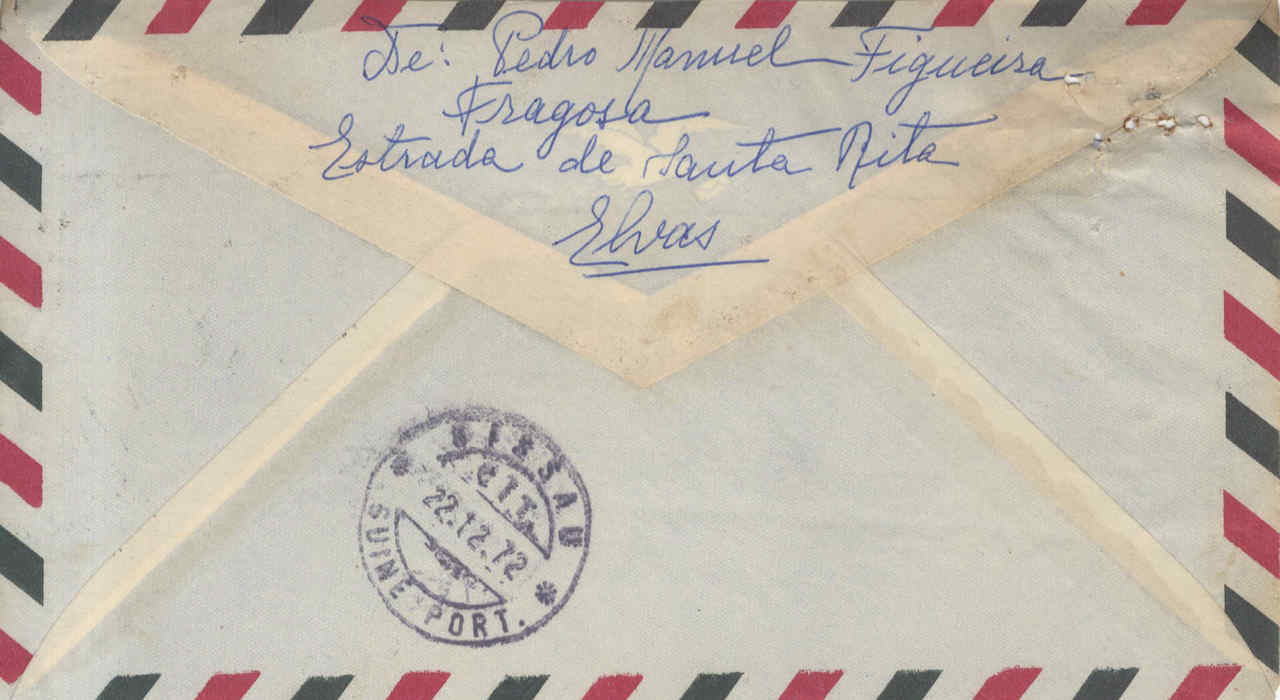 De: Pedro Manuel Figueira
Fragosa
Estrada de Santa Rita
Elvas
BISSAU
C.T.T.
22.12.72
GUINE PORT.